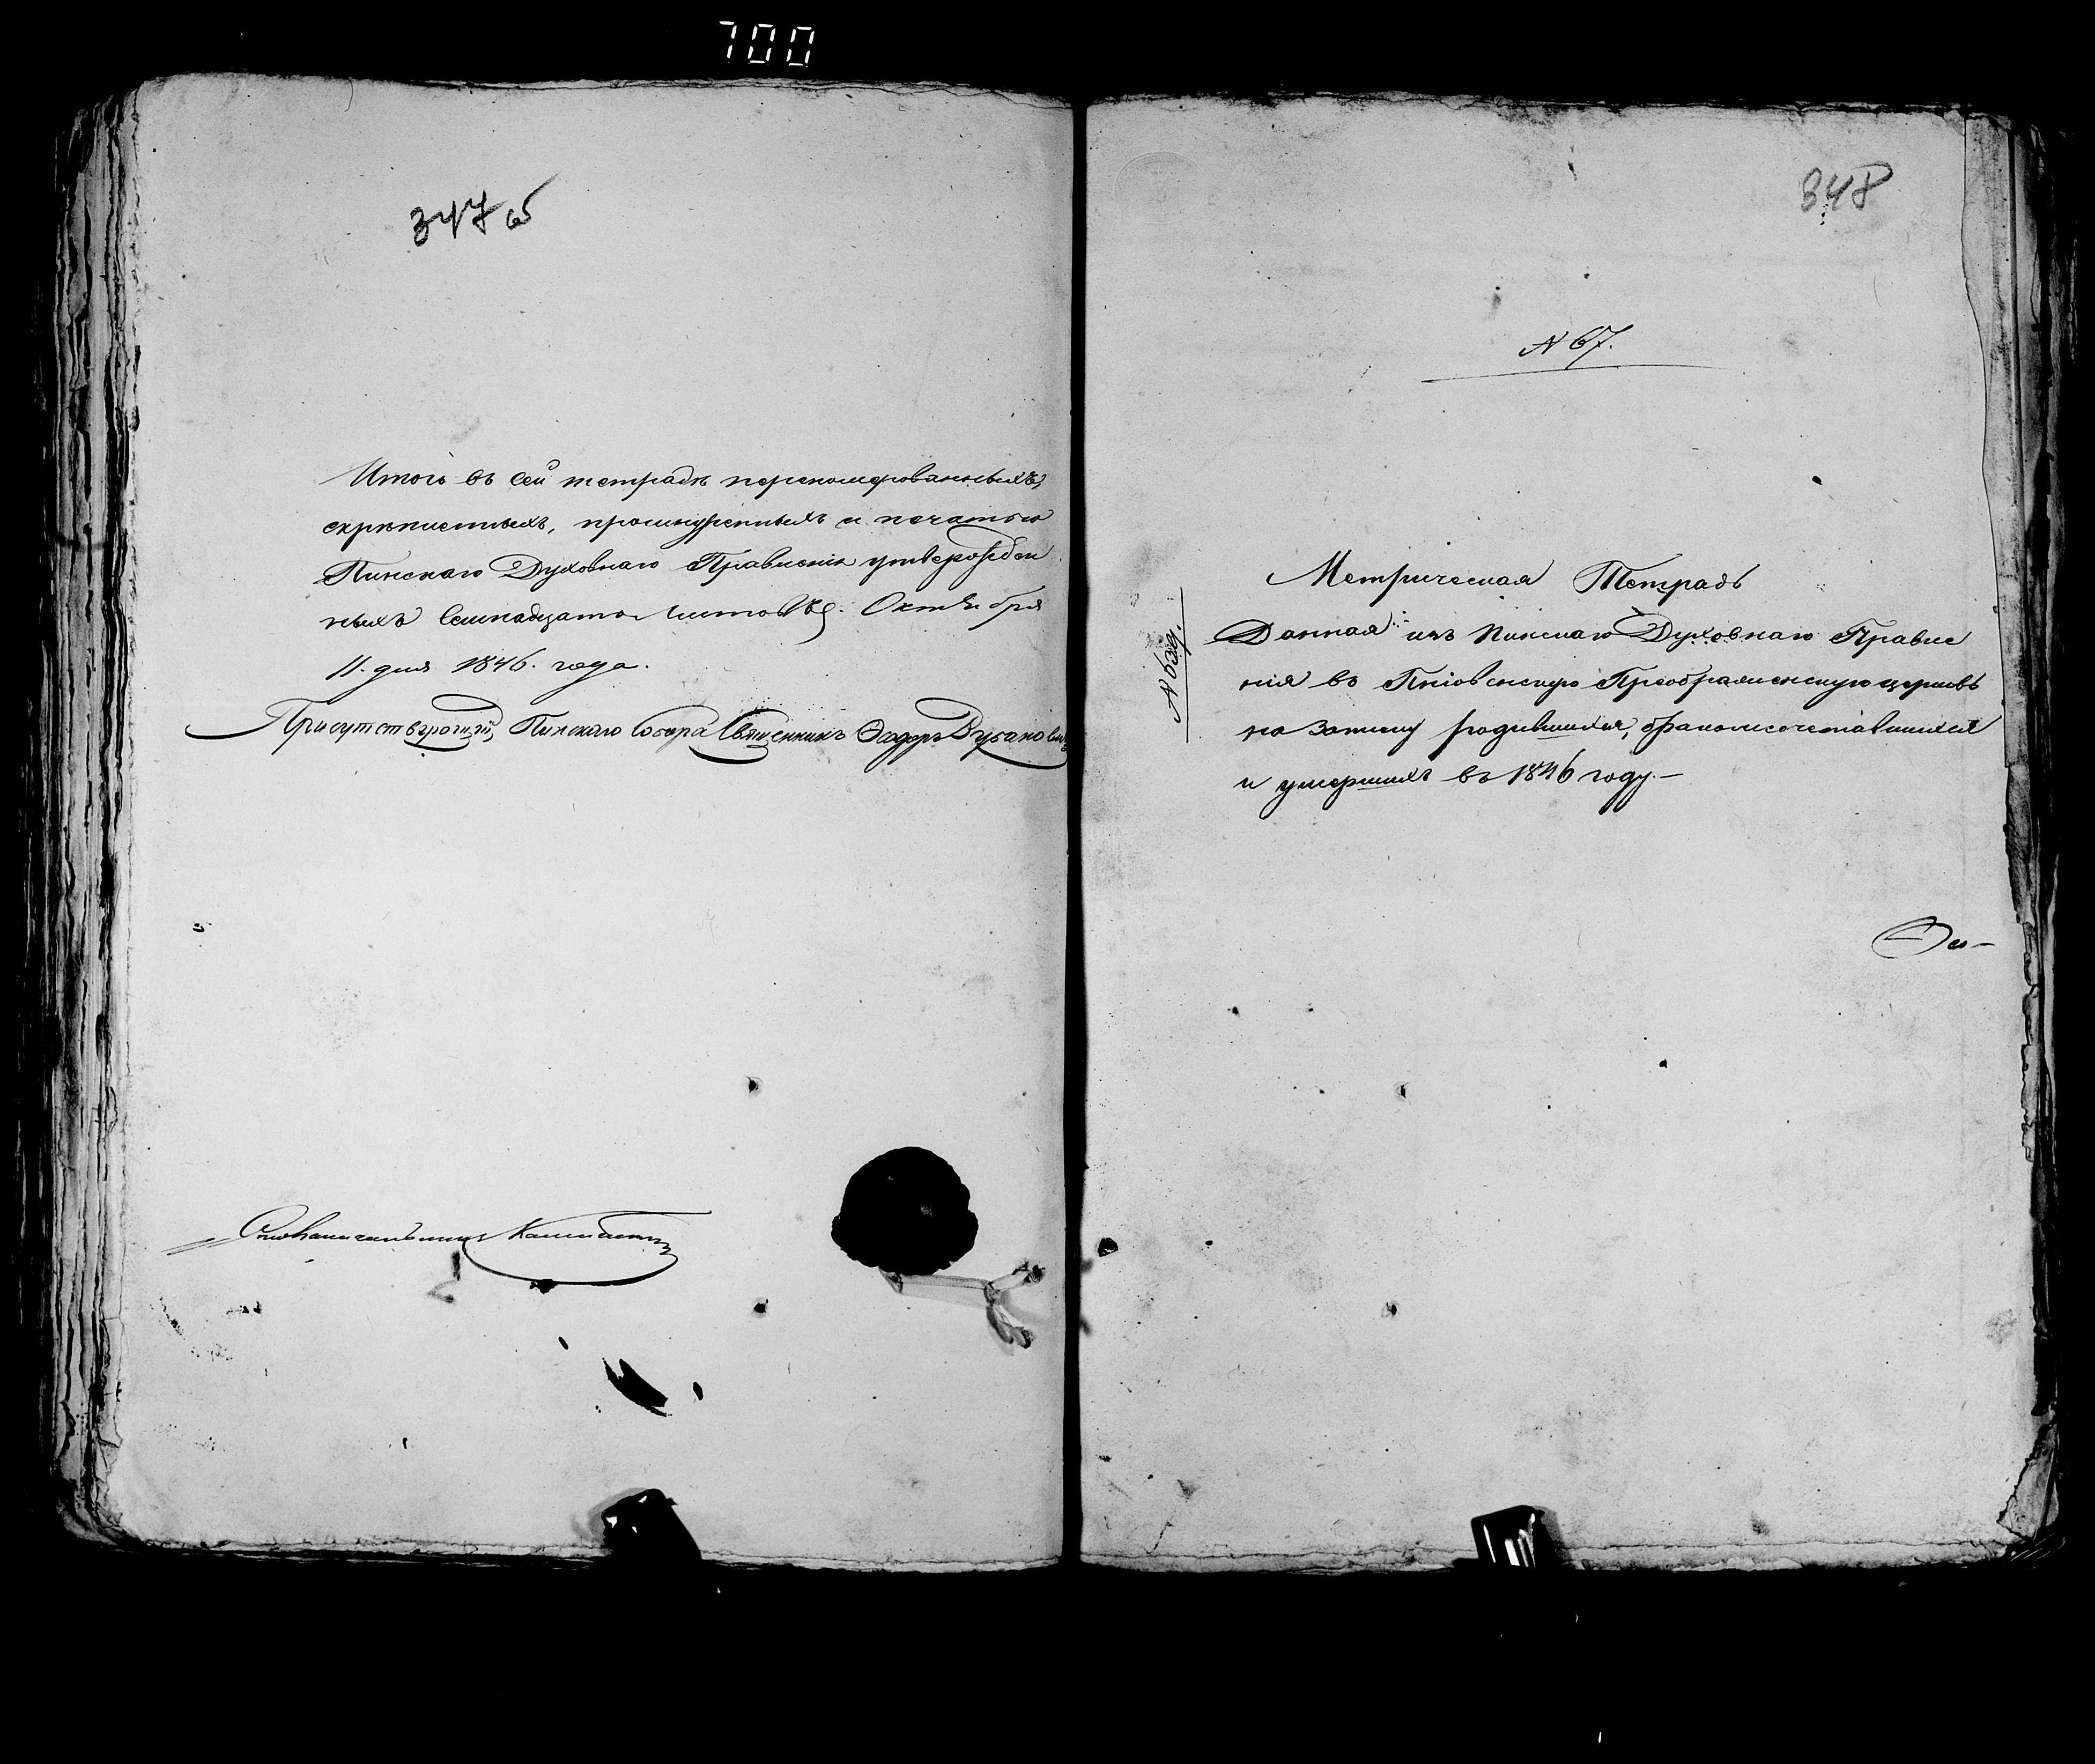 700
347 об
Итого въ сей тетради перенумерованныхъ,
скрѣпленныхъ, прошнуренныхъ и печатью
Пинскаго Духовнаго Правленія утвержден
ныхъ семнадцать листовъ. Октября
11. дня 1846. года.
Присутствующій, Пинскаго Собора Священникъ Ѳеодоръ
Столоначальникъ
348
N 67.
Метрическая Тетрадь
Данная изъ Пинскаго Духовнаго Правле
нія въ Преображенскую церковь
на записку родившихся, бракомъ сочетавшихся
и умершихъ въ 1846 году.—